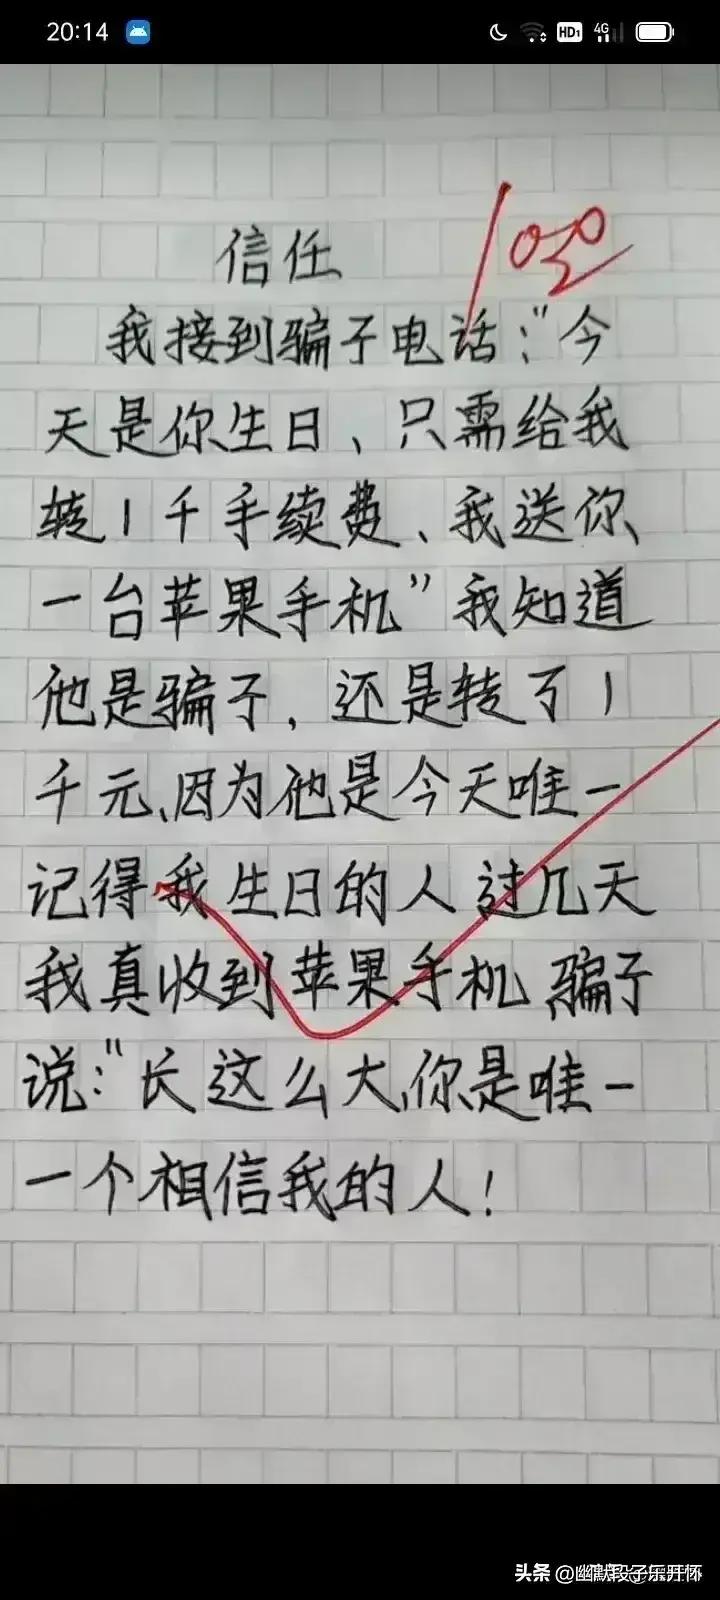 20:14
HD1 4G
信任
100
我接到骗子电话:"今
天是你生日、只需给我
转1千手续费、我送你、
一台苹果手机"我知道
他是骗子,还是转了1
千元、因为他是今天唯一
记得我生日的人 过几天
我真收到苹果手机 骗子
说:"长这么大,你是唯一
一个相信我的人!
头条 @幽默段子乐开怀